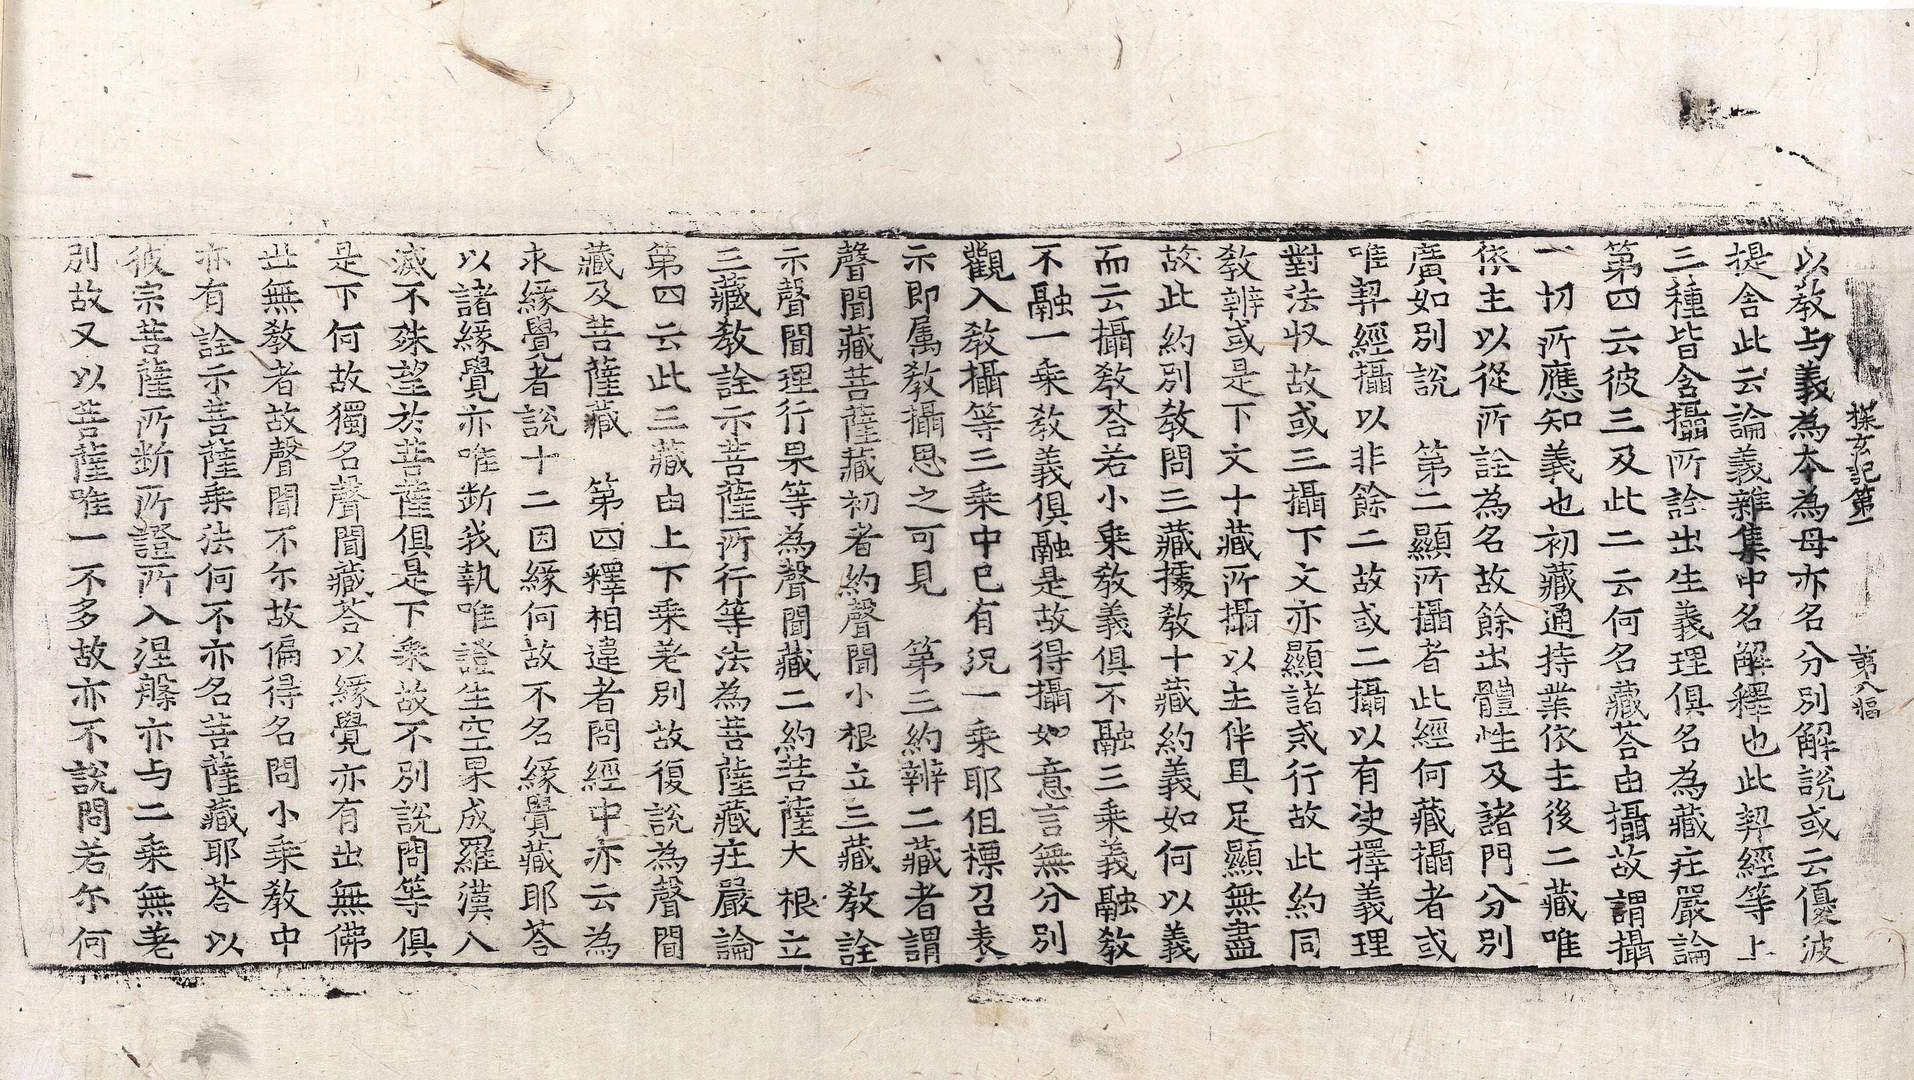 探玄記第一　第八幅
以教与義為本為母亦名分別解說或云優波
提舍此云論義雜集中名解釋也此契經等上
三種皆含攝所詮出生義理俱名為藏莊嚴論
第四云彼三及此二云何名藏荅由攝故謂攝
一切所應知義也初藏通持業依主後二藏唯
依主以從所詮為名故餘出體性及諸門分別
廣如別說　第二顯所攝者此經何藏攝者或
唯契經攝以非餘二故或二攝以有決擇義理
對法収故或三攝下文亦顯諸戒行故此約同
教辨或是下文十藏所攝以主伴具足顯無盡
故此約別教問三藏據教十藏約義如何以義
而云攝教荅若小乗教義俱不融三乗義融教
不融一乗教義俱融是故得攝如意言無分別
觀入教攝等三乗中已有況一乗耶但標召表
示即属教攝思之可見　第三約辨二藏者謂
聲聞藏菩薩藏初者約聲聞小根立三藏教詮
示聲聞理行果等為聲聞藏二約菩薩大根立
三藏教詮示菩薩所行等法為菩薩藏莊嚴論
第四云此三藏由上下乗差別故復說為聲聞
藏及菩薩藏　第四釋相違者問經中亦云為
求緣覺者說十二因緣何故不名緣覺藏耶荅
以諸緣覺亦唯断我執唯證生空果成羅漢入
滅不殊望於菩薩俱是下乗故不別說問等俱
是下何故獨名聲聞藏荅以緣覺亦有出無佛
世無教者故聲聞不尓故偏得名問小乗教中
亦有詮示菩薩乗法何不亦名菩薩藏耶荅以
彼宗菩薩所断所證所入涅槃亦与二乗無差
別故又以菩薩唯一不多故亦不說問若尓何